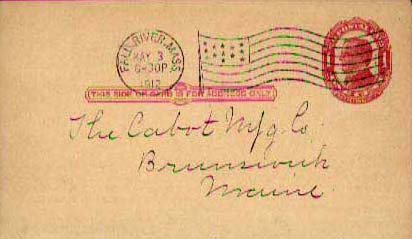 FALL RIVER, MASS.
MAY 3
6-30P
THIS SIDE OF CARD IS FOR ADDRESS ONLY
The Cabot Mfg. Co.
Brunswick
Maine